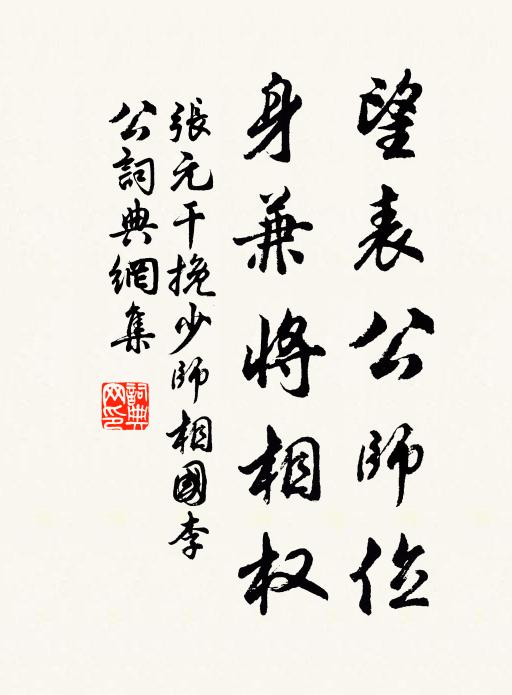 望表公師位
身兼將相权
張元干挽少師相國李
公詞典網集
詞典網印